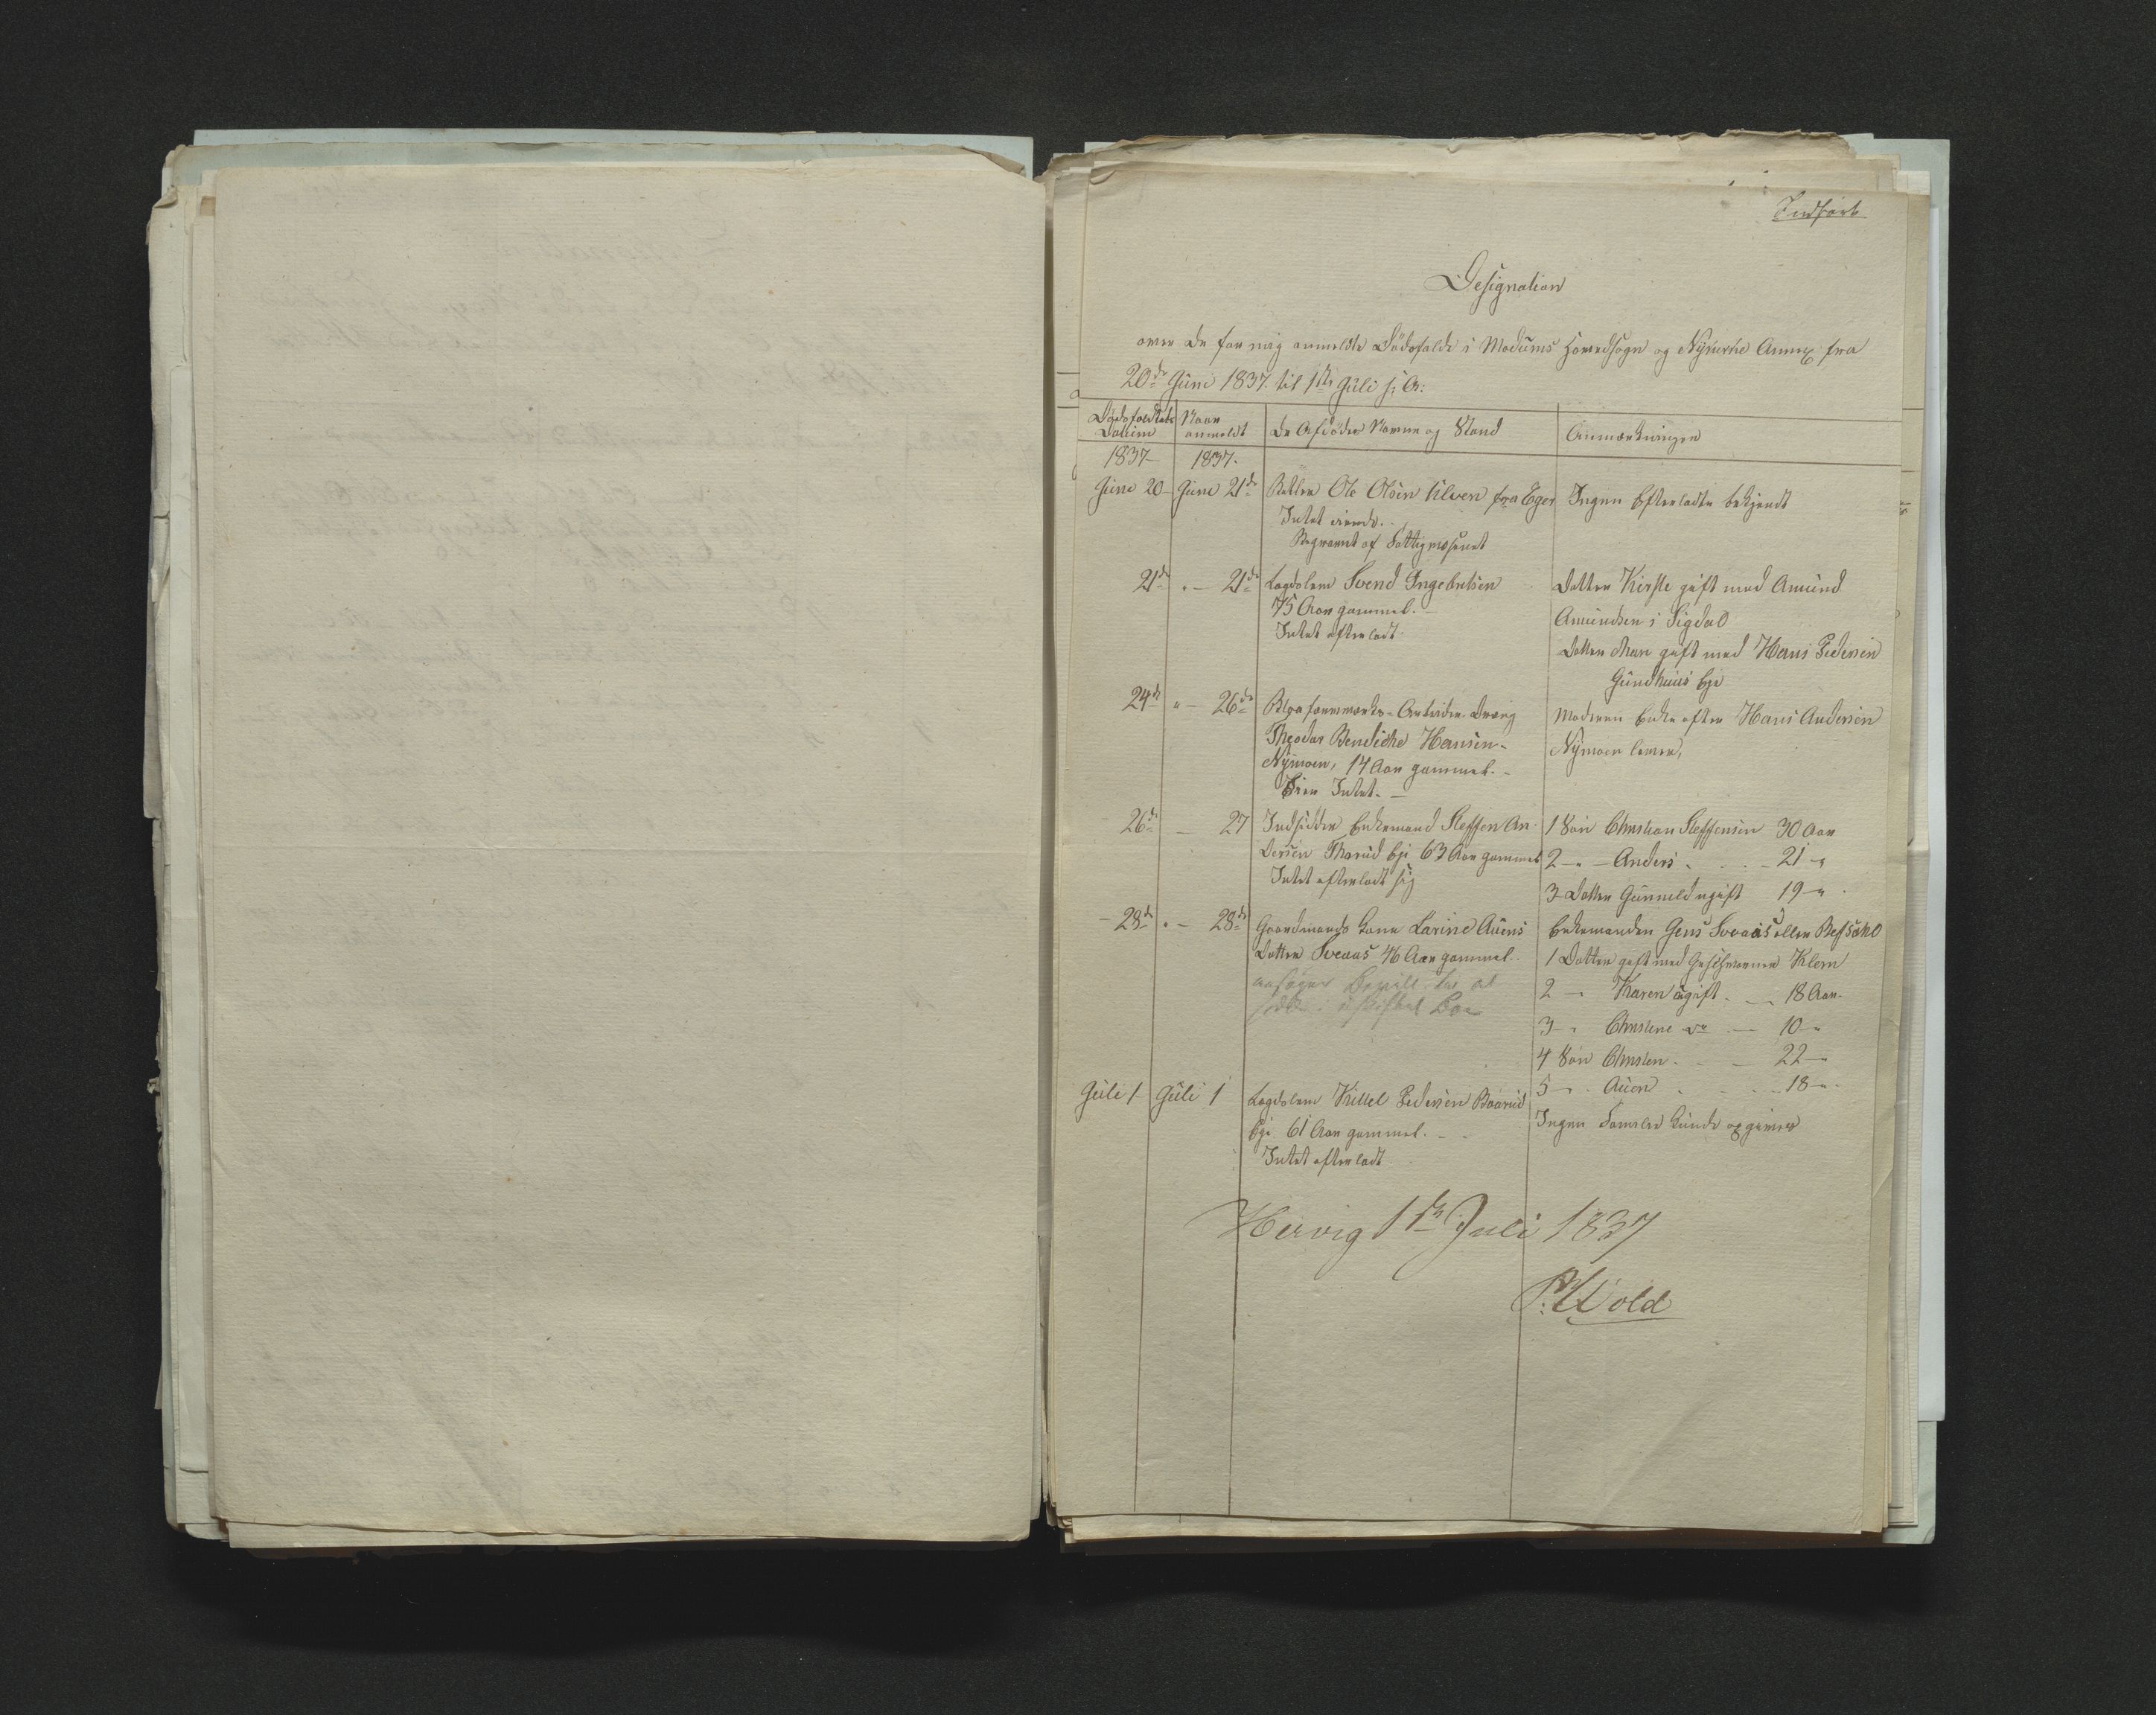 Indført
Designation
over de for mig anmeldte Dödsfalde i Modums Hovedsogn og Nykirke Annex fra
20de Juni 1837 til 1ste Juli s: A:
Dödsfaldets Datum
Naar anmeldt
De Afdödes Navne og Stand
Anmærkninger
1837 1837.
Juni 20 Juni 21de Betler Ole Olsen Ulven fra Eger
Intet eiende.
Begravet af Fattigvæsenet
Ingen Efterladte bekjendt
21de " - 21de Lægdslem Svend Ingebretsen
75 Aar gammel.
Intet efterladt.
Datter Kirstie gift med Amund
Amundsen i Sigdal
Datter Mari gift med Hans Pedersen
Gundhuus Eje
24de " - 26de Blaafarveværks-Arbeider-Dreng
Theodor Bendiche Hansen
Nymoen, 14 Aar gammel.
Eier Intet.
Moderen Enke efter Hans Andersen
Nymoen lever,
26de - 27 Indsidder Enkemand Steffen An-
dersen Thorud Eje 63 Aar gammel
Intet efterladt sig
1 Sön Christian Steffensen 30 Aar
2 - " - Anders - 21 - "
3 Datter Gunneld ugift 19 - "
- 28de " - 28de Gaardmands Kone Larine Auens
Datter Sveaas 46 Aar gammel.
ansøger Bevill. til at
sidde i uskiftet Boe
Enkemanden Jens Sveaas eller
1 Datter gift med Klem
2 - " Karen ugift - 18 Aar
3 - " Christine do - 10 - "
4 Sön Christen - 22 - "
5 - " Auen - 18 - "
Juli 1 Juli 1 Lægdslem Kittel Pedersen Baarud
Eje 61 Aar gammel.
Intet efterladt.
Ingen Familie kunde opgives
Hervig 1ste Juli 1837
P: Wold